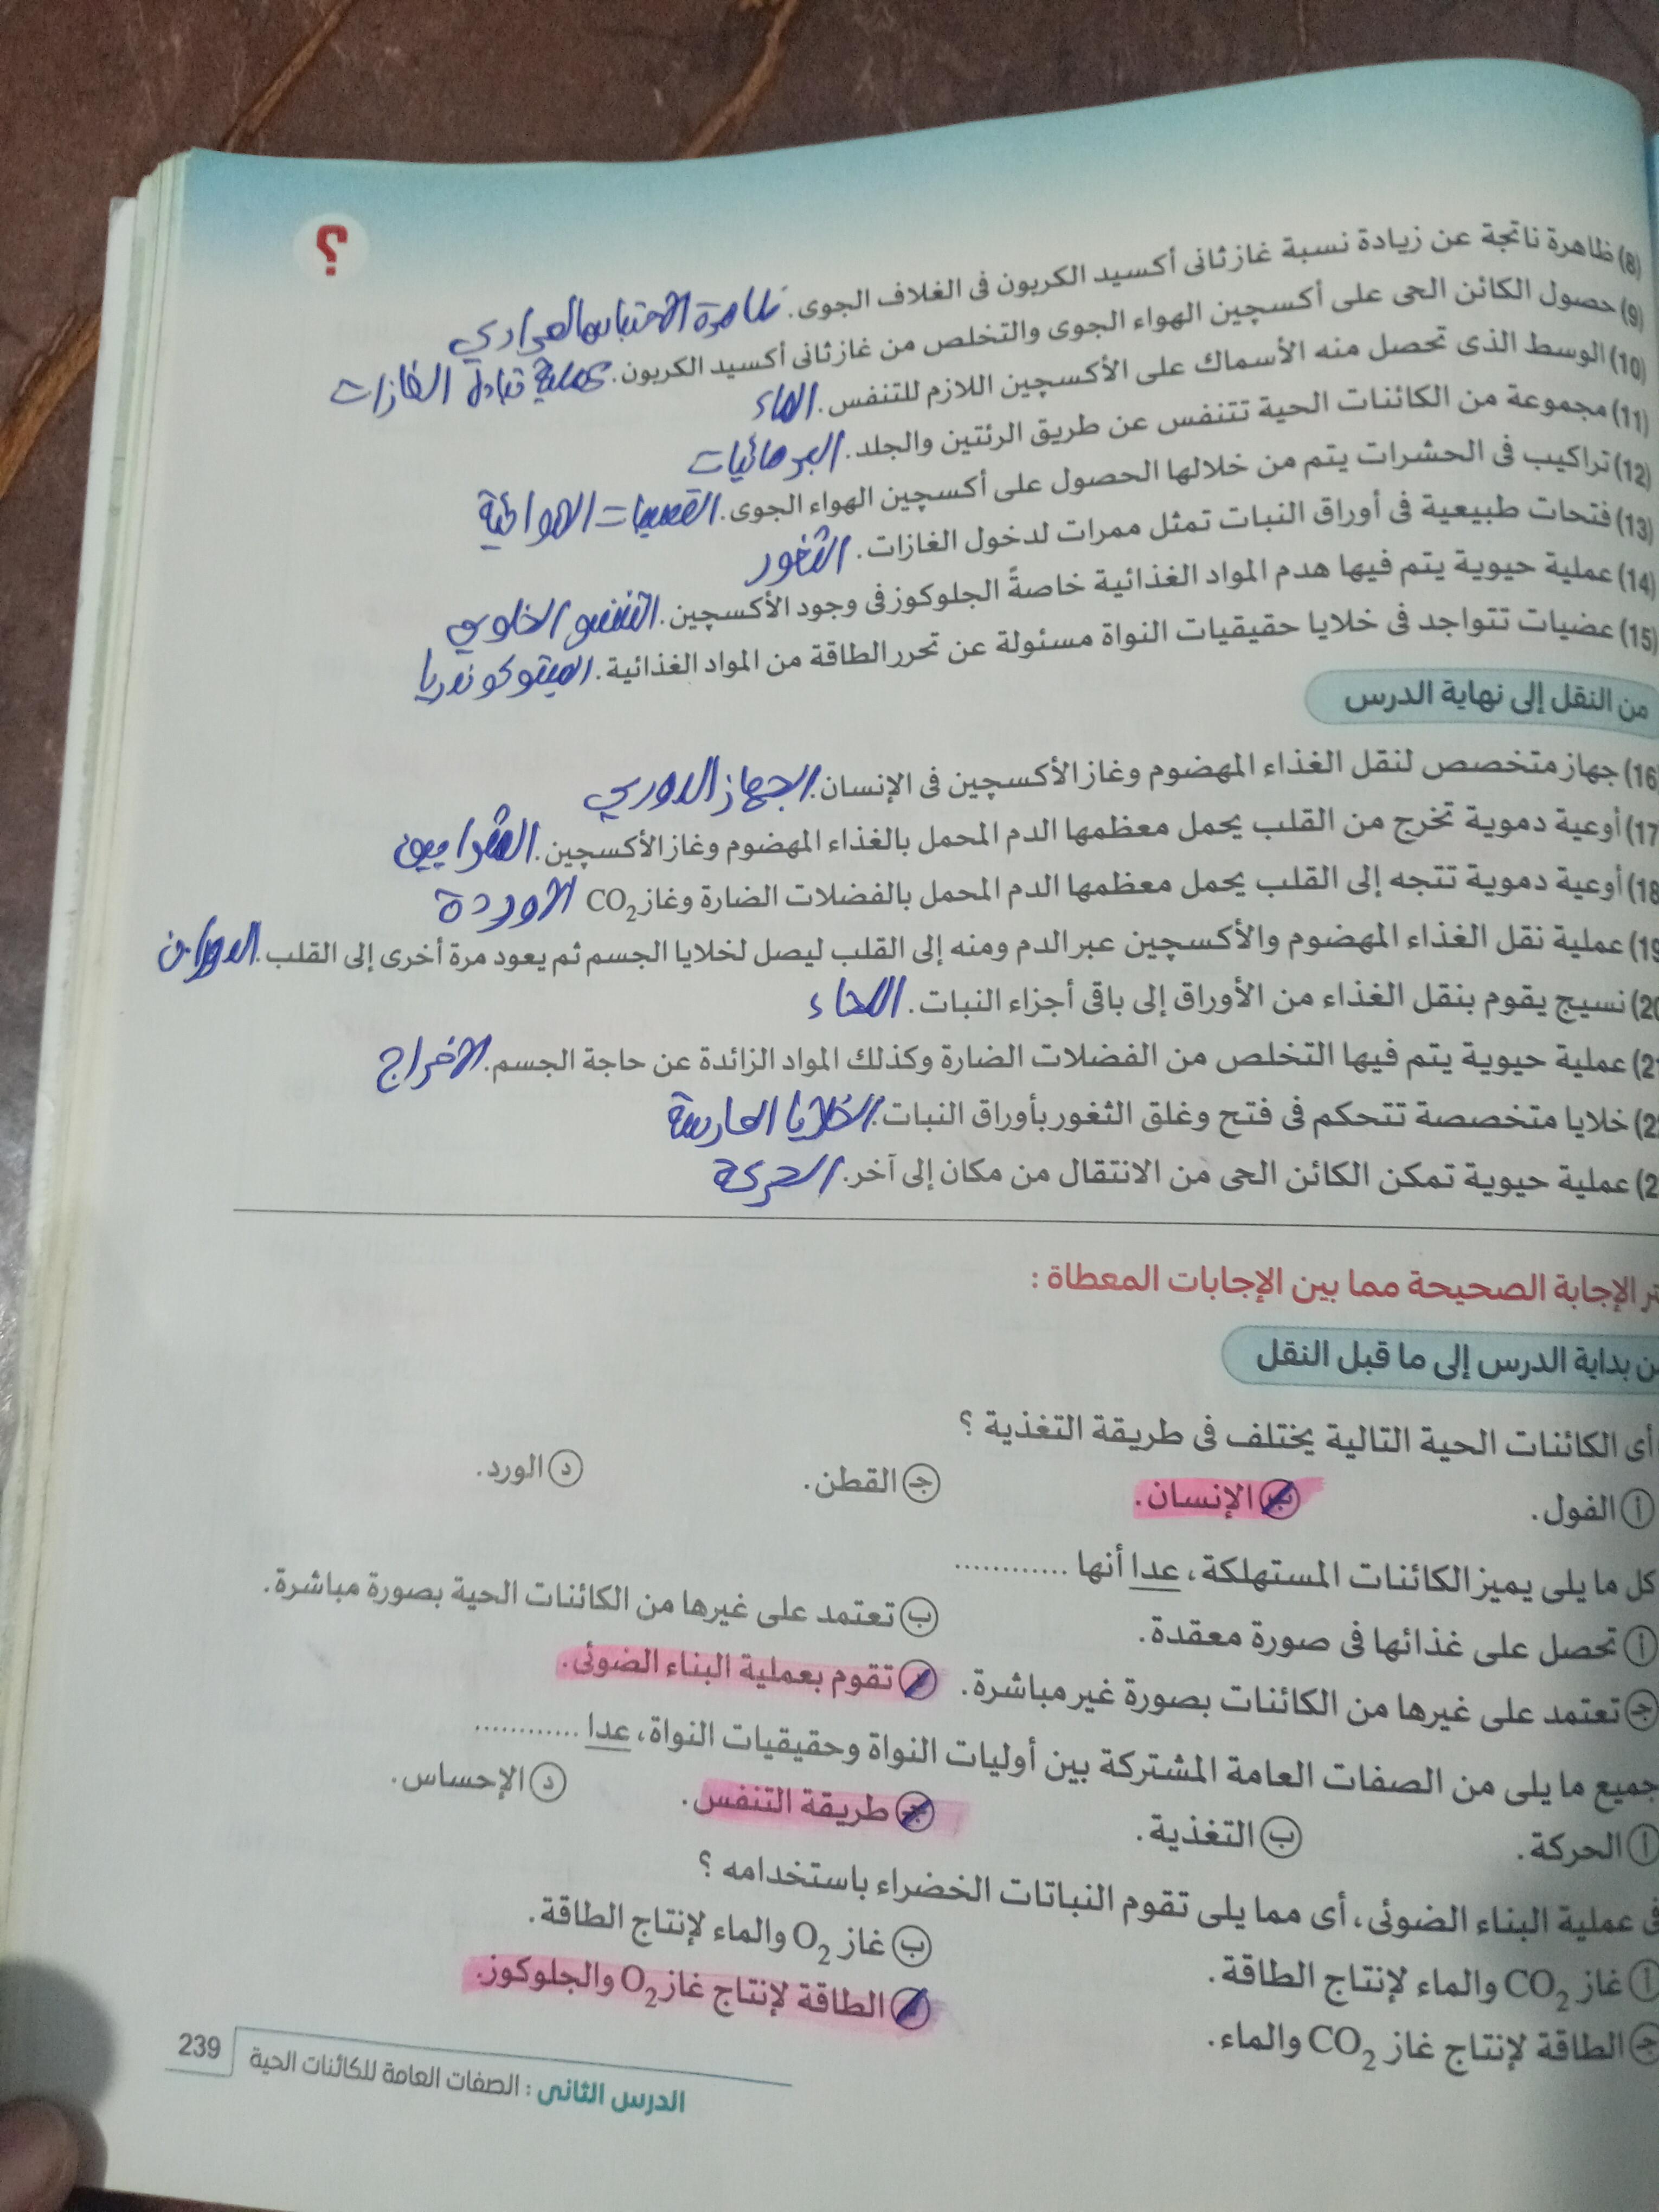 ؟
(8) ظاهرة ناتجة عن زيادة نسبة غاز ثانى أكسيد الكربون فى الغلاف الجوى. ظاهرة الاحتباس الحراري
(9) حصول الكائن الحى على أكسچين الهواء الجوى والتخلص من غاز ثانى أكسيد الكربون. عملية تبادل الغازات
(10) الوسط الذى تحصل منه الأسماك على الأكسچين اللازم للتنفس. الماء
(11) مجموعة من الكائنات الحية تتنفس عن طريق الرئتين والجلد. البرمائيات
(12) تراكيب فى الحشرات يتم من خلالها الحصول على أكسچين الهواء الجوى. القصيبات الهوائية
(13) فتحات طبيعية فى أوراق النبات تمثل ممرات لدخول الغازات. الثغور
(14) عملية حيوية يتم فيها هدم المواد الغذائية خاصةً الجلوكوز فى وجود الأكسچين. التنفس الخلوي
(15) عضيات تتواجد فى خلايا حقيقيات النواة مسئولة عن تحرر الطاقة من المواد الغذائية. الميتوكوندريا
من النقل إلى نهاية الدرس
(16 جهاز متخصص لنقل الغذاء المهضوم وغاز الأكسچين فى الإنسان. الجهاز الدوري
(17 أوعية دموية تخرج من القلب يحمل معظمها الدم المحمل بالغذاء المهضوم وغاز الأكسچين. الشرايين
(18 أوعية دموية تتجه إلى القلب يحمل معظمها الدم المحمل بالفضلات الضارة وغاز CO₂ الاوردة
(19 عملية نقل الغذاء المهضوم والأكسچين عبر الدم ومنه إلى القلب ليصل لخلايا الجسم ثم يعود مرة أخرى إلى القلب. الدوران
(20 نسيج يقوم بنقل الغذاء من الأوراق إلى باقى أجزاء النبات. اللحاء
(2 عملية حيوية يتم فيها التخلص من الفضلات الضارة وكذلك المواد الزائدة عن حاجة الجسم. الاخراج
(2 خلايا متخصصة تتحكم فى فتح وغلق الثغور بأوراق النبات. الخلايا الحارسة
(2 عملية حيوية تمكن الكائن الحى من الانتقال من مكان إلى آخر. الحركة
الإجابة الصحيحة مما بين الإجابات المعطاة :
بداية الدرس إلى ما قبل النقل
أى الكائنات الحية التالية يختلف فى طريقة التغذية ؟
أ الفول. ب الإنسان. ج القطن. د الورد.
كل ما يلى يميز الكائنات المستهلكة، عدا أنها ............
أ تحصل على غذائها فى صورة معقدة. ب تعتمد على غيرها من الكائنات الحية بصورة مباشرة.
ج تعتمد على غيرها من الكائنات بصورة غير مباشرة. تقوم بعملية البناء الضوئى.
جميع ما يلى من الصفات العامة المشتركة بين أوليات النواة وحقيقيات النواة، عدا ............
أ الحركة. ب التغذية. ج طريقة التنفس. د الإحساس.
فى عملية البناء الضوئى، أى مما يلى تقوم النباتات الخضراء باستخدامه ؟
أ غاز CO₂ والماء لإنتاج الطاقة. ب غاز O₂ والماء لإنتاج الطاقة.
ج الطاقة لإنتاج غاز CO₂ والماء. الطاقة لإنتاج غاز O₂ والجلوكوز.
الدرس الثانى : الصفات العامة للكائنات الحية 239